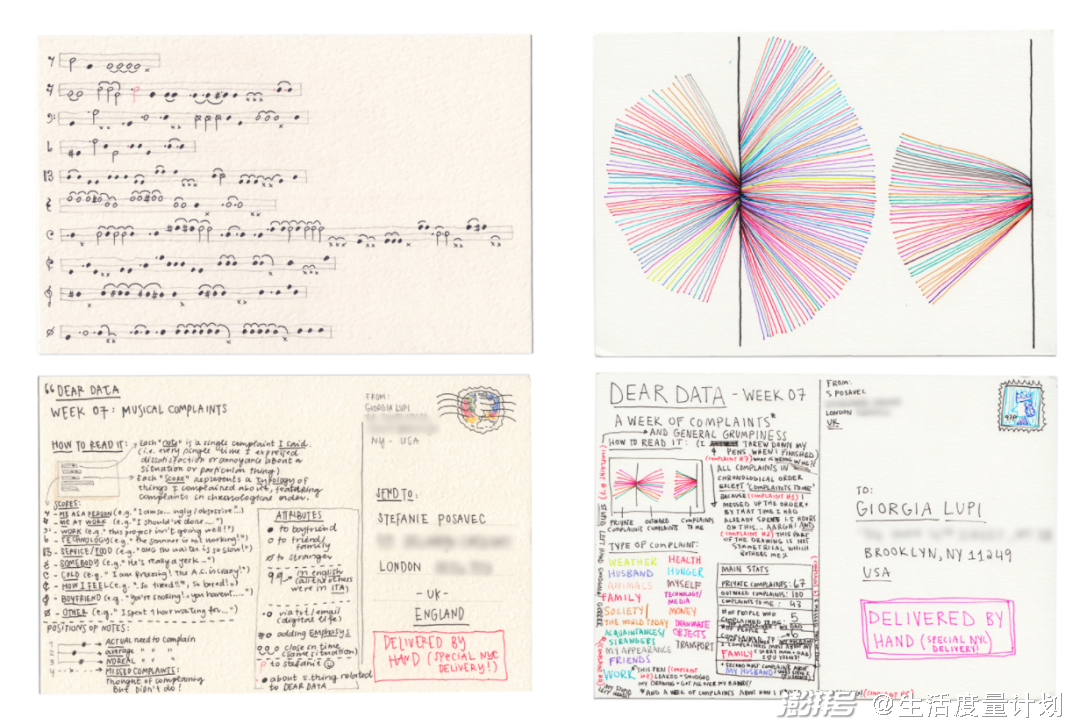 DEAR DATA
WEEK 07: MUSICAL COMPLAINTS
HOW TO READ IT:
Each "note" is a single complaint I said.
(i.e. every single time I expressed
dissatisfaction or annoyance about a
situation or particular thing)
Each "score" represents a typology of
things I complained about, featuring
complaints in chronological order.
SCORES:
ME AS A PERSON (e.g. "I am so... ugly / obsessive"...)
ME AT WORK (e.g. "I should've done...")
WORK (e.g. "this project isn't going well!")
TECHNOLOGY (e.g. "the scanner is not working!")
SERVICE/FOOD (e.g. "OMG the waiter is so slow!")
SOMEBODY (e.g. "He's really a jerk...")
COLD (e.g. "I am freezing! The A.C. is crazy!")
HOW I FEEL (e.g. "so tired!!", "so bored!")
BOYFRIEND (e.g. "you're snoring!, you haven't......")
OTHER (e.g. "I spent 1 hour waiting for.....")
POSITIONS OF NOTES:
1 ACTUAL need to complain
2 average " " "
3 NO REAL " " "
4 MISSED COMPLAINTS:
Thought of complaining
But didn't do!
ATTRIBUTES
to boyfriend
to friend/
family
to stranger
in english
(all the others
were in ITA)
via txt/email
(digital life)
adding EMPHASYS
close in time
(same situation)
to stefanie
about s.thing related
to DEAR DATA
FROM:
GIORGIA LUPI
NY - USA
SEND TO:
STEFANIE POSAVEC
LONDON
- UK -
ENGLAND
DELIVERED BY
HAND (SPECIAL NYC
DELIVERY!)
DEAR DATA - WEEK 07
A WEEK OF COMPLAINTS*
AND GENERAL GRUMPINESS
HOW TO READ IT:
(I THREW DOWN MY
PENS WHEN I FINISHED)
ALL COMPLAINTS IN
CHRONOLOGICAL ORDER
EXCEPT 'COMPLAINTS TO ME'
BECAUSE (COMPLAINT #1) I
MESSED UP THE ORDER +
BY THAT TIME I HAD
ALREADY SPENT 1.5 HOURS
ON THIS... AARGH! AND
(COMPLAINT #2) THIS PART
OF THE DRAWING IS NOT
SYMMETRICAL WHICH
BOTHERS ME!
PRIVATE COMPLAINTS
OUTWARD COMPLAINTS
COMPLAINTS TO ME
TYPE OF COMPLAINT:
WEATHER
HUSBAND
ANIMALS
FAMILY
SOCIETY/
THE WORLD TODAY
ACQUAINTANCES/
STRANGERS
MY APPEARANCE
FRIENDS
WORK
HEALTH
HUNGER
MYSELF
TECHNOLOGY/
MEDIA
MONEY
INANIMATE
OBJECTS
TRANSPORT
MAIN STATS
PRIVATE COMPLAINTS: 67
OUTWARD COMPLAINTS: 100
COMPLAINTS TO ME: 43
# OF PEOPLE WHO
COMPLAINED TO ME: 5
FAMILY
MY HUSBAND
*THIS PEN (COMPLAINT
LEAKED + SMUDGED
MY DRAWING + GOT ALL OVER MY HANDS!
FROM:
S. POSAVEC
LONDON
UK
TO:
GIORGIA LUPI
BROOKLYN, NY 11249
USA
DELIVERED BY
HAND (SPECIAL NYC
DELIVERY!)
澎湃号 @生活度量计划